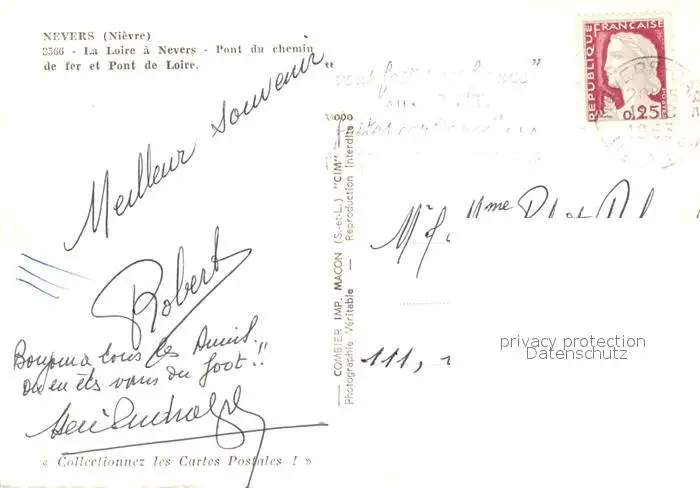 NEVERS (Nièvre)
3566 - La Loire à Nevers - Pont du chemin
de fer et Pont de Loire.
Meilleur souvenir
Robert
Bonjour à tous les Amis.
où en êts vous du foot !!
« Collectionnez les Cartes Postales ! »
COMBIER IMP. MACON (S.-et-L.) "CIM"
Photographie Véritable — Reproduction Interdite
REPUBLIQUE FRANÇAISE
POSTES
0,25
Mr &
Mme
111,
privacy protection
Datenschutz